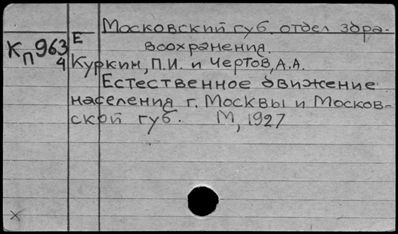 Московский губ. отдел здра-
воохранения.
Е
Кп 963/4
Куркин, П.И. и Чертов, А.А.
Естественное движение
населения г. Москвы и Москов-
ской губ. М, 1927
×